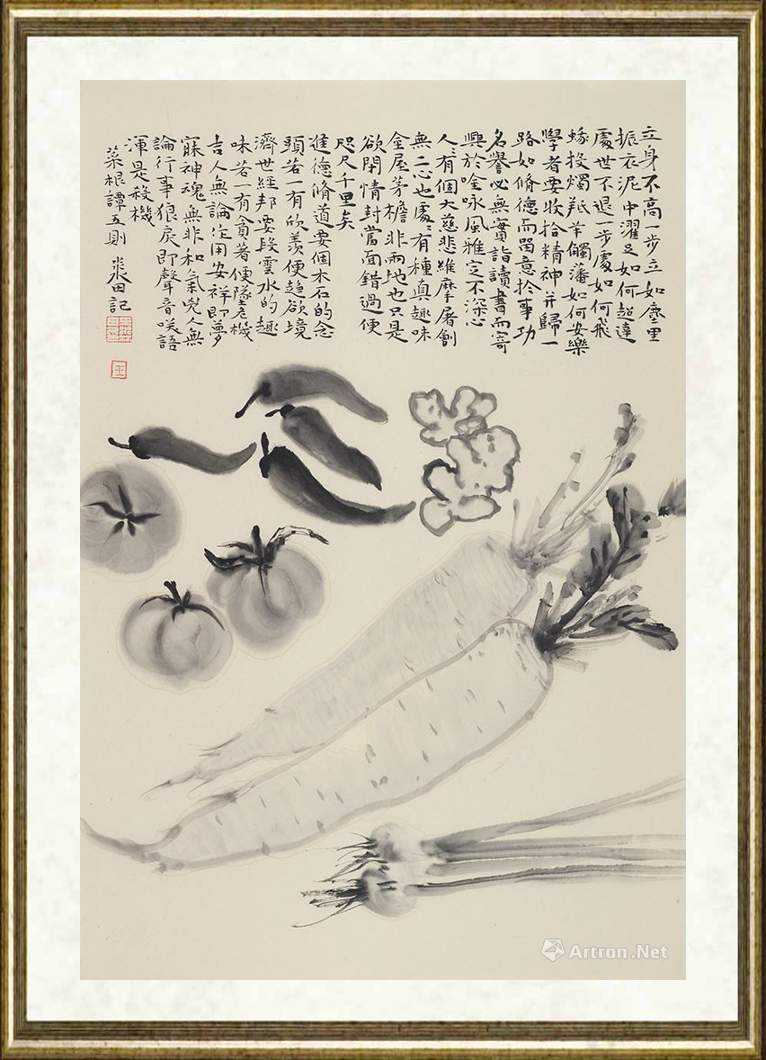 立身不高一步立如塵里
振衣泥中濯足如何超達
處世不退一步處如何飛
蛾投燭羝羊觸藩如何安樂
學者要收拾精神并歸一
路如脩德而留意於事功
名譽必無實詣讀書而寄
興於唫咏風雅定不深心
人有個大慈悲維摩屠劊
無二心也處〻有種真趣味
金屋茅檐非兩地也只是
欲閉情封當面錯過便
咫尺千里矣
進德脩道要個木石的念
頭若一有欣羨便趨欲境
濟世經邦要段雲水的趣
味若一有貪著便墜危機
吉人無論作用安祥即夢
寐神魂無非和氣兇人無
論行事狼戾即聲音咲語
渾是殺機
菜根譚五則 田記
王
Artron.Net